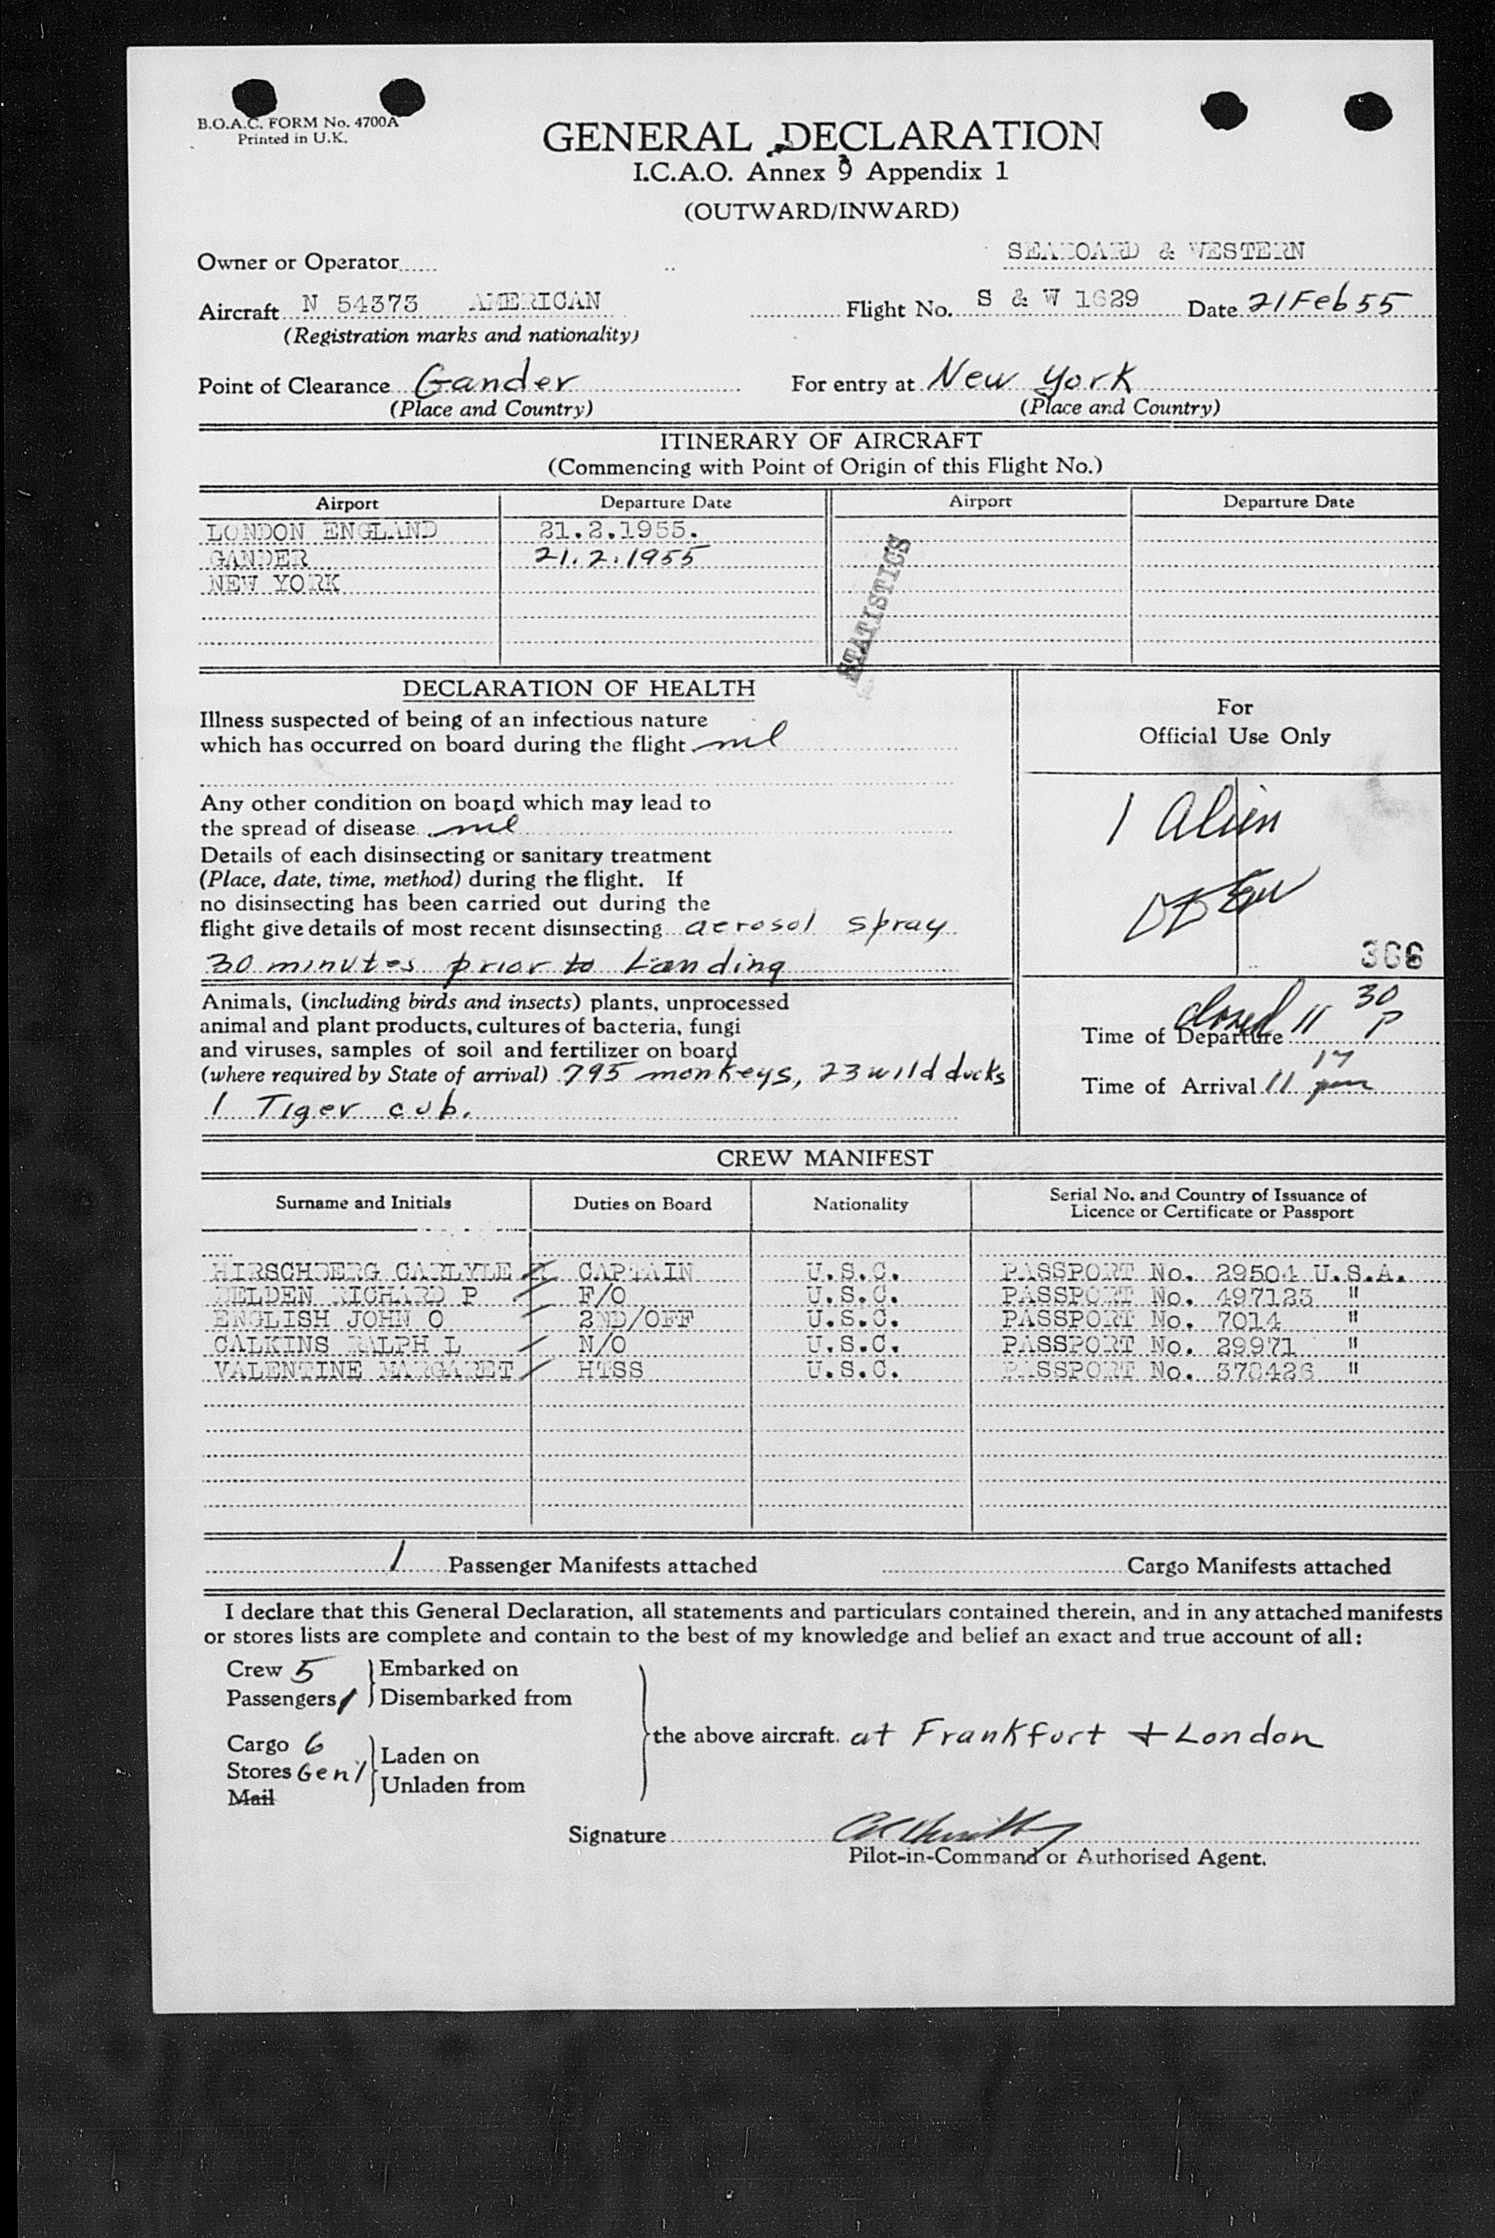 B.O.A.C. FORM No. 4700A
Printed in U.K.
GENERAL DECLARATION
I.C.A.O. Annex 9 Appendix 1
(OUTWARD/INWARD)
Owner or Operator SEABOARD & WESTERN
Aircraft N 54373 AMERICAN Flight No. S & W 1629 Date 21 Feb 55
(Registration marks and nationality)
Point of Clearance Gander For entry at New York
(Place and Country) (Place and Country)
ITINERARY OF AIRCRAFT
(Commencing with Point of Origin of this Flight No.)
Airport Departure Date Airport Departure Date
LONDON ENGLAND 21.2.1955.
GANDER 21.2.1955
NEW YORK
STATISTICS
DECLARATION OF HEALTH
Illness suspected of being of an infectious nature
which has occurred on board during the flight nil
Any other condition on board which may lead to
the spread of disease nil
Details of each disinsecting or sanitary treatment
(Place, date, time, method) during the flight. If
no disinsecting has been carried out during the
flight give details of most recent disinsecting aerosol spray
30 minutes prior to Landing
Animals, (including birds and insects) plants, unprocessed
animal and plant products, cultures of bacteria, fungi
and viruses, samples of soil and fertilizer on board
(where required by State of arrival) 795 monkeys, 23 wild ducks
1 Tiger cub.
For
Official Use Only
1 Alien
366
closed 11 30 P
Time of Departure
Time of Arrival 11 17 pm
CREW MANIFEST
Surname and Initials Duties on Board Nationality Serial No. and Country of Issuance of
Licence or Certificate or Passport
HIRSCHBERG CARLYLE CAPTAIN U.S.C. PASSPORT No. 29504 U.S.A.
BELDEN RICHARD P F/O U.S.C. PASSPORT No. 497123 "
ENGLISH JOHN O 2ND/OFF U.S.C. PASSPORT No. 7014 "
CALKINS RALPH L N/O U.S.C. PASSPORT No. 29971 "
VALENTINE MARGARET HTSS U.S.C. PASSPORT No. 378426 "
1 Passenger Manifests attached Cargo Manifests attached
I declare that this General Declaration, all statements and particulars contained therein, and in any attached manifests
or stores lists are complete and contain to the best of my knowledge and belief an exact and true account of all:
Crew 5 Embarked on
Passengers 1 Disembarked from
the above aircraft. at Frankfurt + London
Cargo 6 Laden on
Stores Gen'l Unladen from
Mail
Signature
Pilot-in-Command or Authorised Agent.